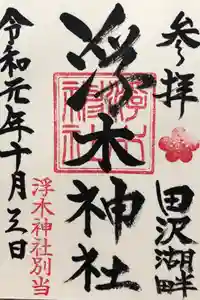 参拝
田沢湖畔
浮木神社
令和元年十月三日
浮木神社別当